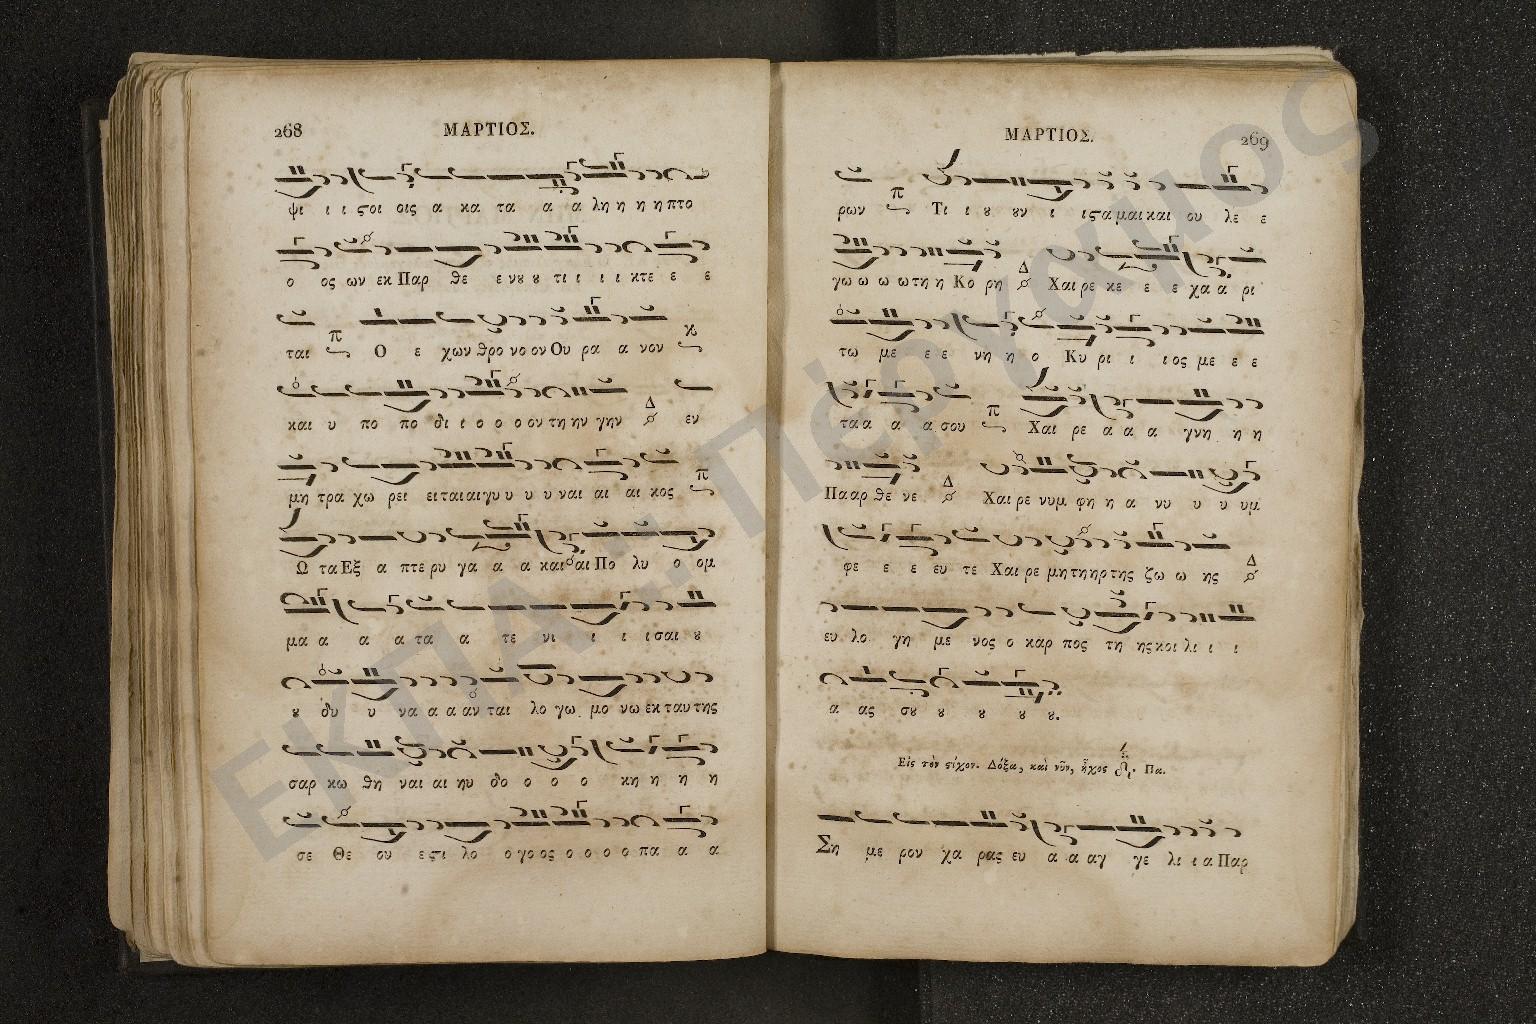 268
ΜΑΡΤΙΟΣ.
ψι ι ι ϛοι οις α κα τα α α λη η η η πτο
ο ος ων εκ Παρ θε ε νȣ ȣ τι ι ι ι κτε ε ε
ται π Ο ε χων θρο νο ον Ου ρα α νον κ
και υ πο πο δι ι ο ο ο ον τη ην γην Δ εν
μη τρα χω ρει ει ται αι γυ υ υ υ ναι αι αι κος π
Ω τα Εξ α πτε ρυ γα α α και αι Πο λυ ο ομ
μα α α α τα α τε νι ι ι ι σαι ȣ
ȣ δυ υ να α α αν ται λο γω μο νω εκ ταυ της
σαρ κω θη ναι αι ηυ δο ο ο ο κη η η η
σε Θε ου ε ϛι λο ο γο ος ο ο ο ο πα α α
ΜΑΡΤΙΟΣ.
269
ρων π Τι ι ȣ ȣν ι ιϛα μαι και ου λε ε
γω ω ω ω τη η Κο ρη Δ Χαι ρε κε ε ε χα α ρι
τω με ε ε νη η ο Κυ ρι ι ι ος με ε ε
τα α α α σου π Χαι ρε α α α γνη η η
Πα αρ θε νε Δ Χαι ρε νυμ φη η α νυ υ υ υμ
φε ε ε ευ τε Χαι ρε μη τη ηρ της ζω ω ης Δ
ευ λο γη με νος ο καρ πος τη ης κοι λι ι ι
α ας σȣ ȣ ȣ ȣ ȣ.
Εἰς τὸν ϛίχον. Δόξα, καὶ νῦν, ἦχος Πα.
Ση με ρον χα ρας ευ α α αγ γε λι ι α Παρ
ΕΚΠΑ .: Πέργαμος